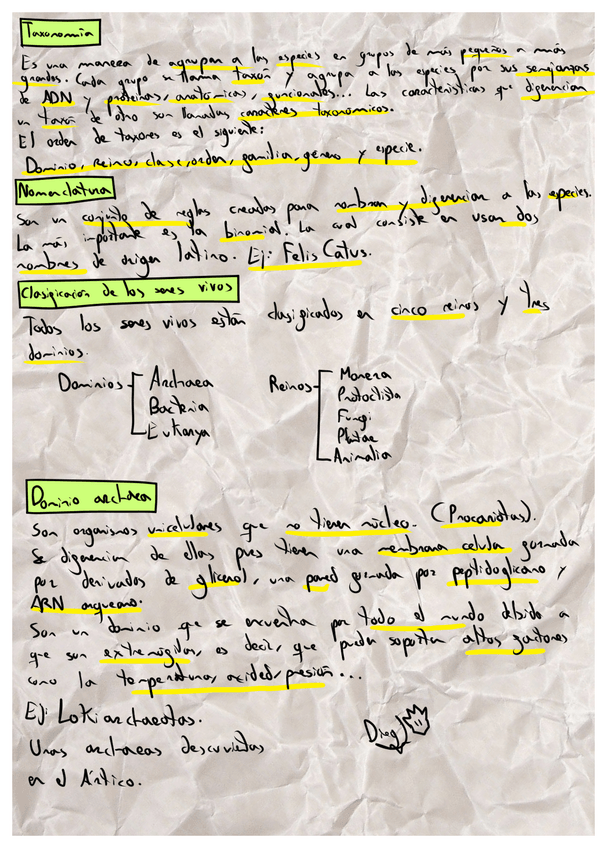 Taxonomía
Es una manera de agrupar a las especies en grupos de más pequeños a más
grandes. Cada grupo se llama taxón y agrupa a las especies por sus semejanzas
de ADN y proteínas, anatómicas, funcionales... Las características que diferencian
un taxón de otro son llamadas caracteres taxonómicos.
El orden de taxones es el siguiente:
Dominio, Reino, clase, orden, familia, género y especie.
Nomenclatura
Son un conjunto de reglas creadas para nombrar y diferenciar a las especies.
La más importante es la binomial. La cual consiste en usar dos
nombres de origen latino. Ej: Felis Catus.
Clasificación de los seres vivos
Todos los seres vivos están clasificados en cinco reinos y tres
dominios.
Dominios Archaea
Bacteria
Eukarya
Reinos Monera
Protoctista
Fungi
Plantae
Animalia
Dominio archaea
Son organismos unicelulares que no tienen núcleo. (Procariotas).
Se diferencian de ellas pues tienen una membrana celular formada
por derivados de glicerol, una pared formada por peptidoglicano y
ARN arqueano.
Son un dominio que se encuentra por todo el mundo debido a
que son extremófilos, es decir, que pueden soportar altos factores
como la temperatura, acidez, presión...
Ej: Lokiarchaeotas.
Unas archaeas descubiertas
en el Ártico.
Diego